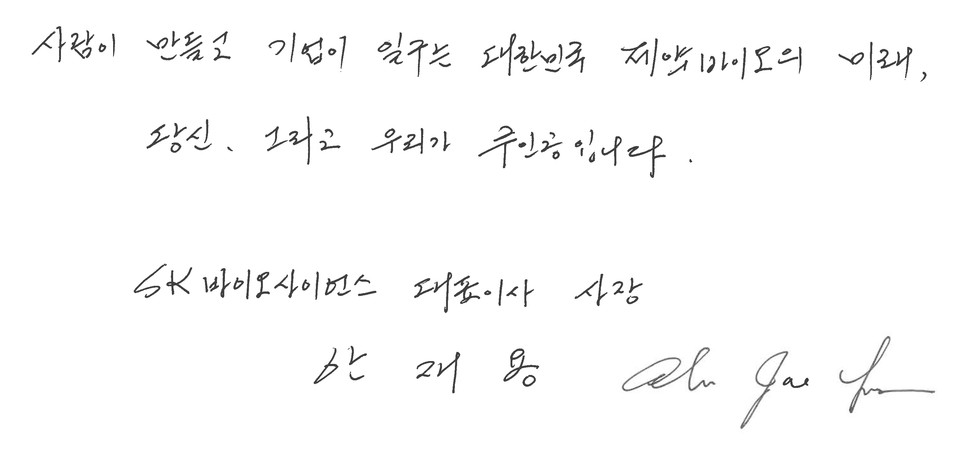 사람이 만들고 기업이 일구는 대한민국 제약바이오의 미래,
당신, 그리고 우리가 주인공입니다.
SK바이오사이언스 대표이사 사장
안 재 용 Ahn Jae Yong